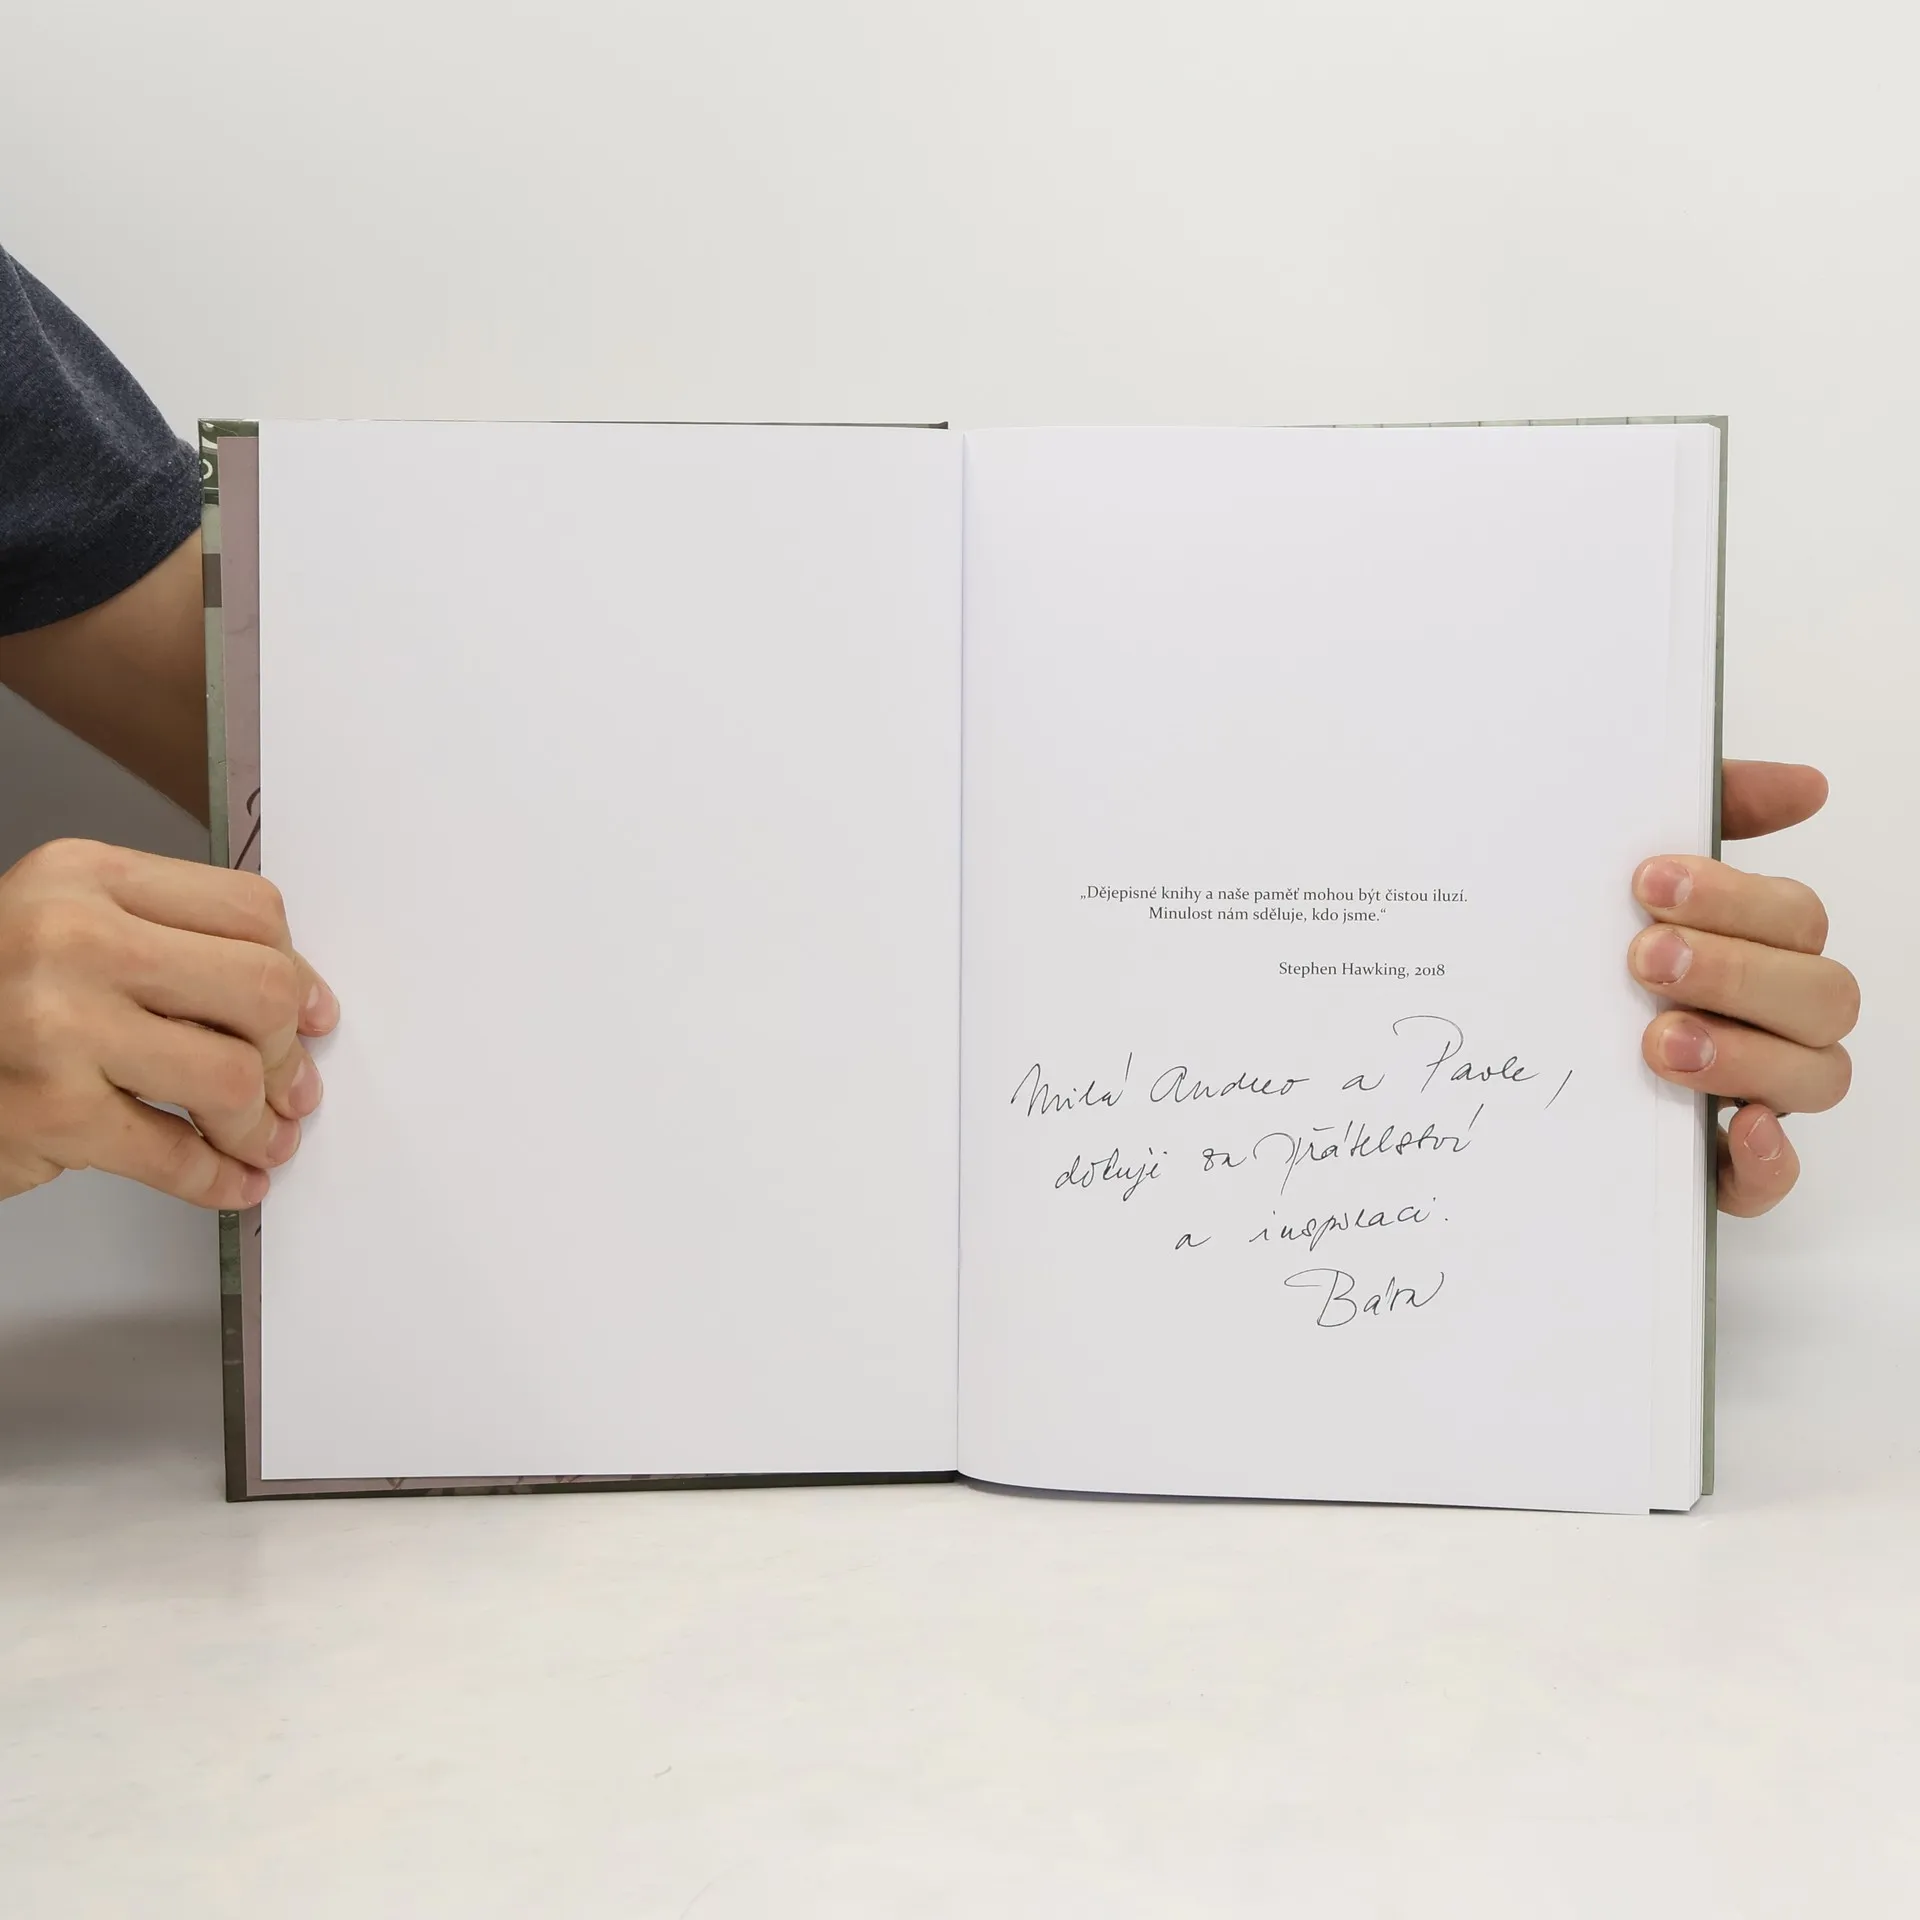 „Dějepisné knihy a naše paměť mohou být čistou iluzí.
Minulost nám sděluje, kdo jsme.“
Stephen Hawking, 2018
Milá Andreo a Pavle,
děkuji za přátelství
a inspiraci.
Bára